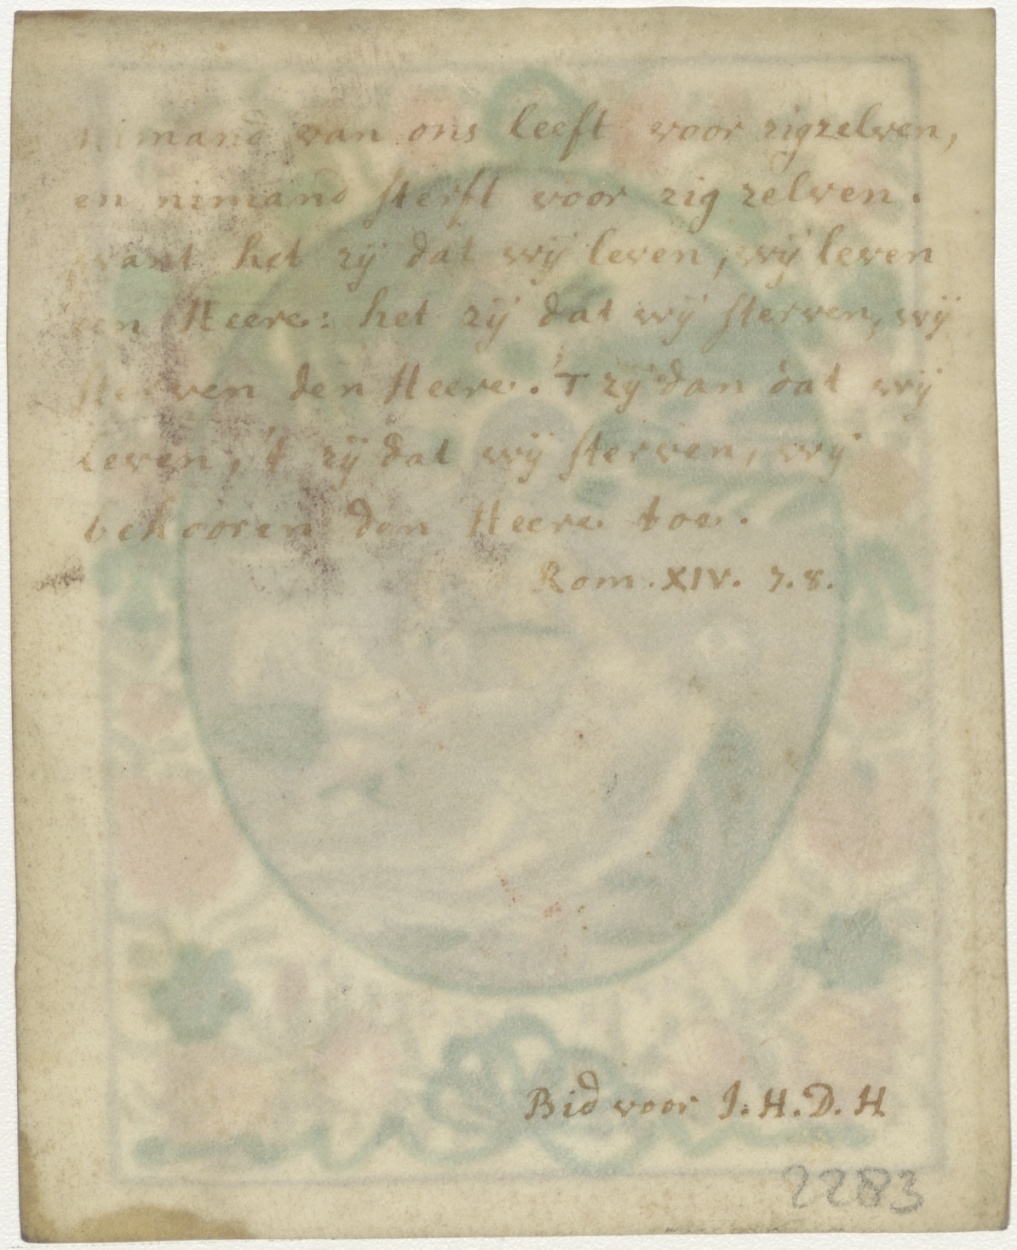 nimand van ons leeft voor zigzelven,
en nimand sterft voor zig zelven.
want het zij dat wij leven, wij leven
den Heere: het zij dat wij sterven, wij
sterven den Heere. 'T zij dan dat wij
leven, 't zij dat wij sterven, wij
behooren den Heere toe.
Rom. XIV. 7.8.
Bid voor J.H.D.H
2283